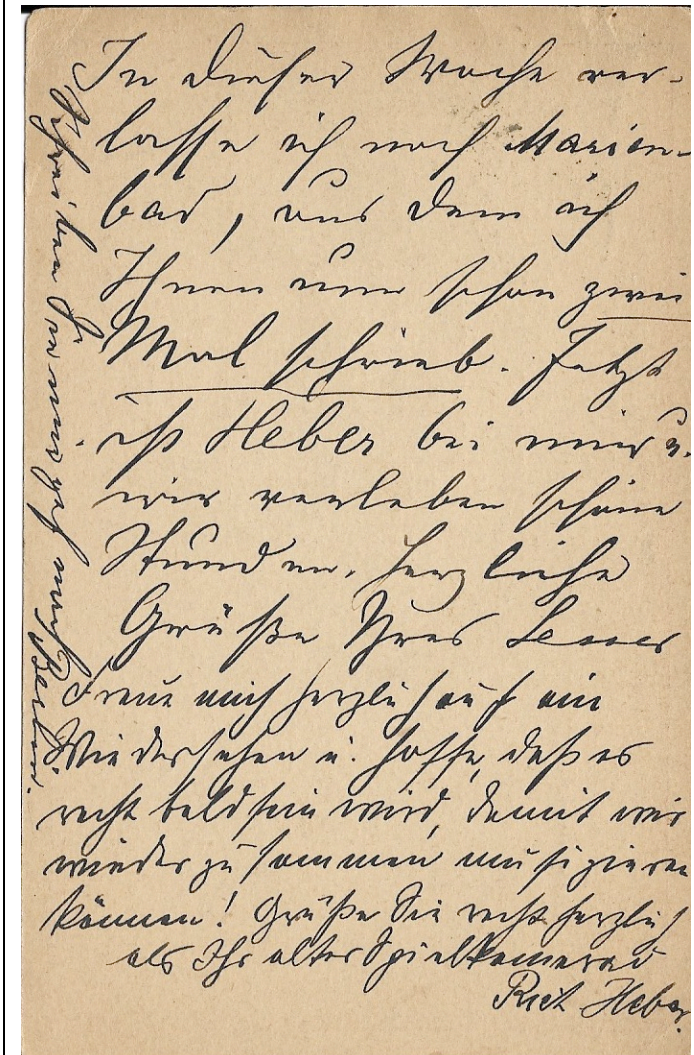 In dieser Woche ver-
lasse ich noch Marien-
bad, aus dem ich
Ihnen nun schon zwei
Mal schrieb. Jetzt
ist Heber bei mir u.
wir verleben schöne
Stunden. Herzliche
Grüße Ihres
Freue mich herzlich auf ein
Wiedersehen u. hoffe, daß es
recht bald sein wird, damit wir
wieder zusammen musizieren
können! Grüße Sie recht herzlich
als Ihr alter Spielkamerad
Heber.
Schreiben Sie nur nach
Berlin.